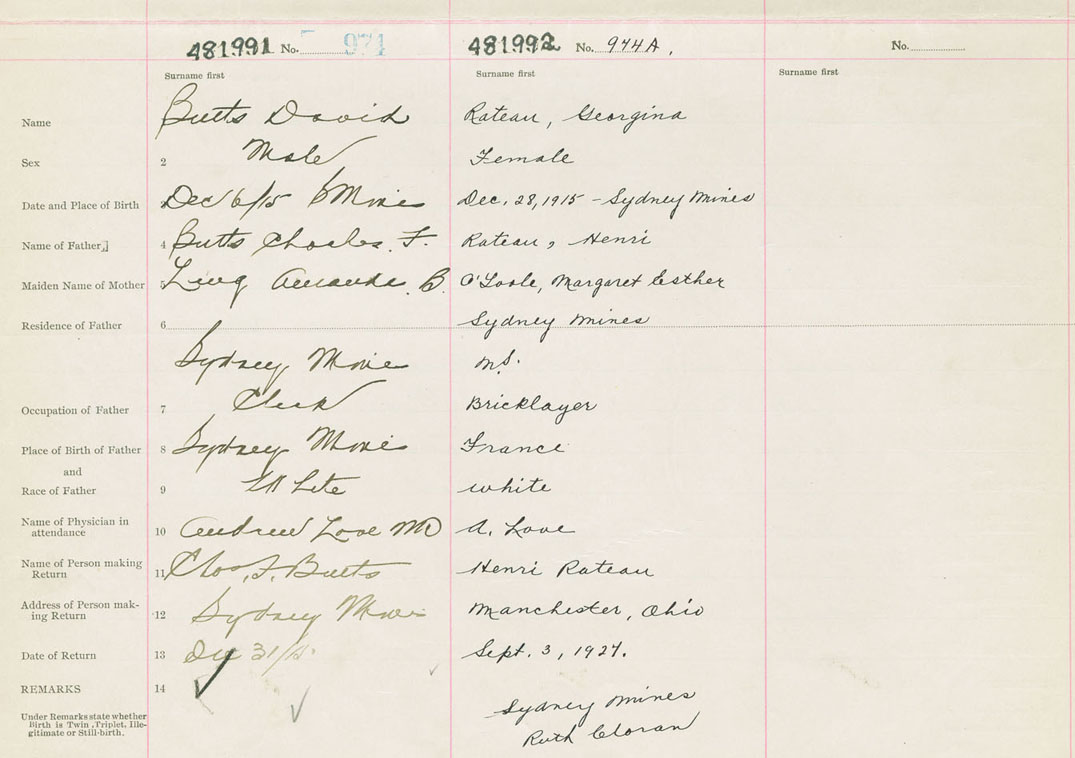 481991 No. 971
481992 No. 974A.
No.
Surname first
Surname first
Surname first
Name
Butts David
Rateau, Georgina
Sex
2
Male
Female
Date and Place of Birth
Dec 6/15 S Mines
Dec. 28, 1915 - Sydney Mines
Name of Father
4
Butts Charles. F.
Rateau, Henri
Maiden Name of Mother
5
Amanda. B.
O'Toole, Margaret Esther
Residence of Father
6
Sydney Mines
Sydney Mines
N.S.
Occupation of Father
7
Clerk
Bricklayer
Place of Birth of Father
8
Sydney Mines
France
and
Race of Father
9
White
white
Name of Physician in
attendance
10
Andrew Love MD
A. Love
Name of Person making
Return
11
Chas. F. Butts
Henri Rateau
Address of Person mak-
ing Return
12
Sydney Mines
Manchester, Ohio
Date of Return
13
Dec 31/15.
Sept. 3, 1927.
REMARKS
14
Under Remarks state whether
Birth is Twin, Triplet, Ille-
gitimate or Still-birth.
Sydney Mines
Ruth Cloran